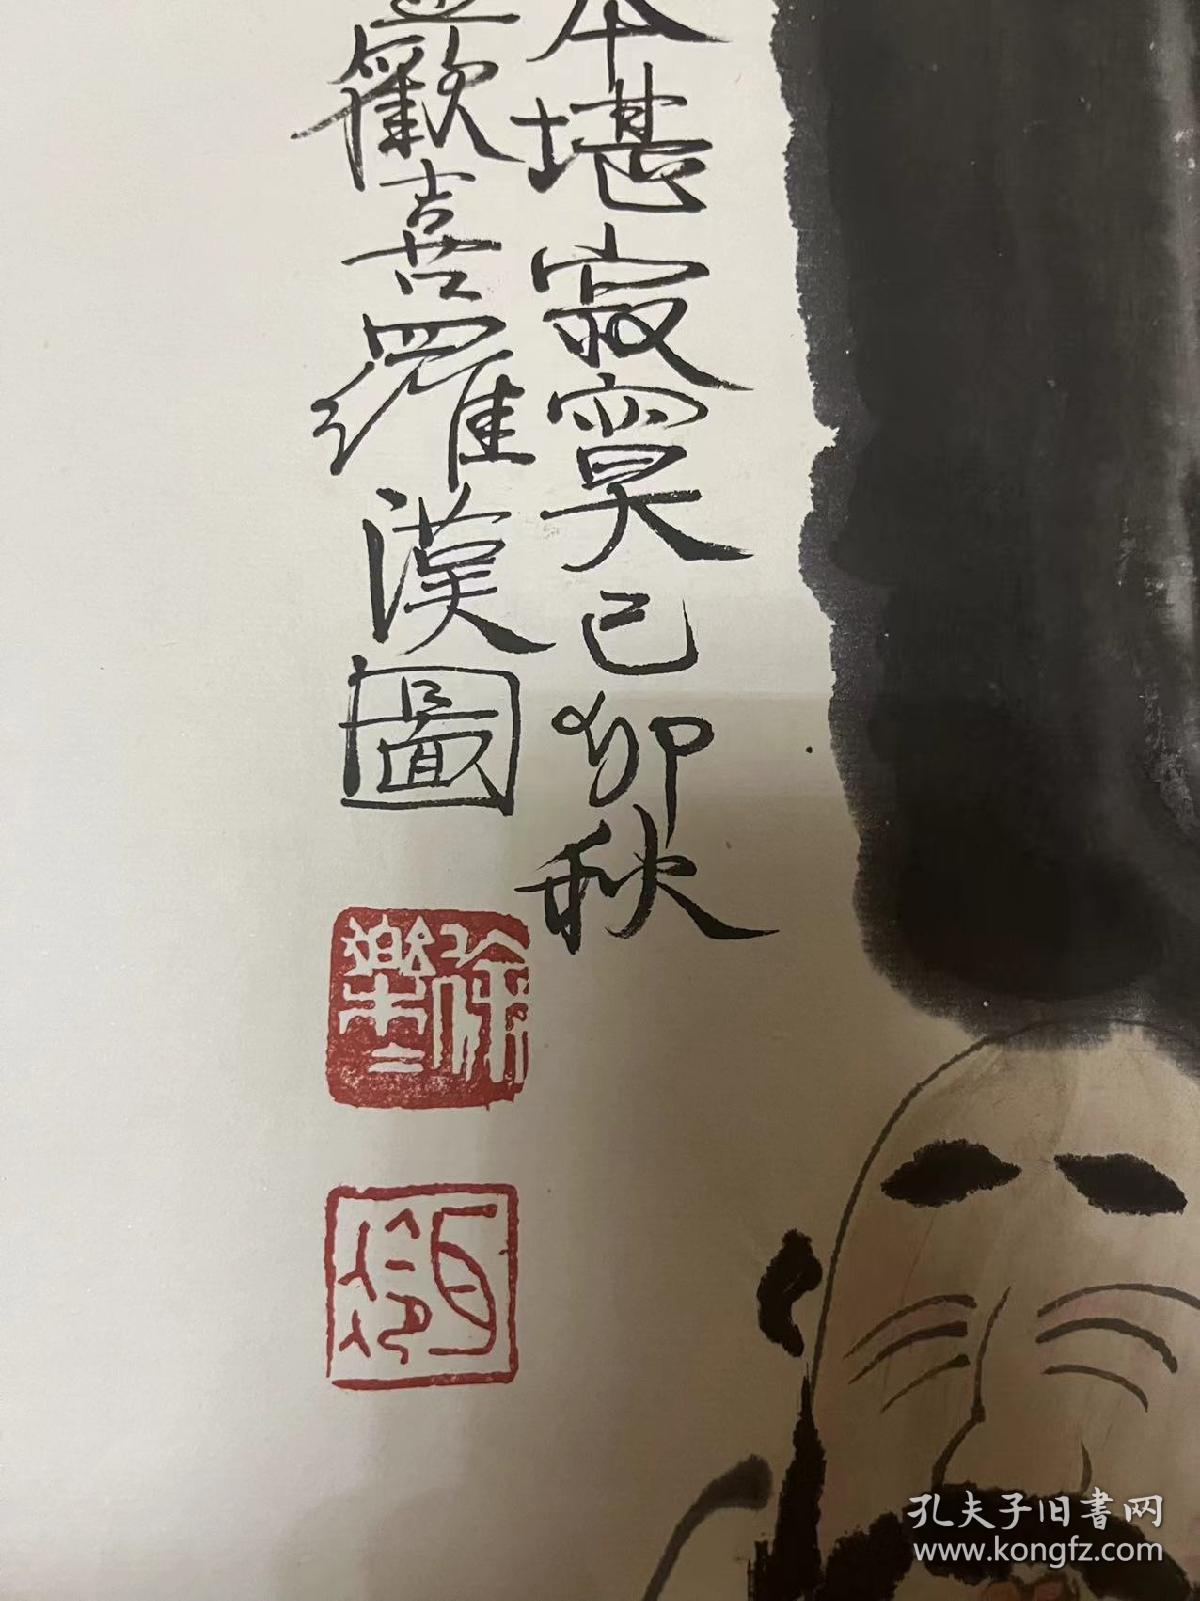 本堪寂寞己卯秋
歡喜羅漢圖
徐樂樂
孔夫子旧書网
www.kongfz.com